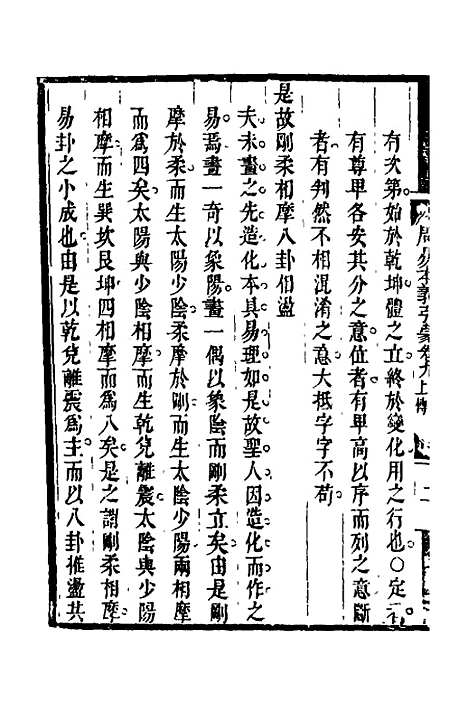 周易本義引蒙卷九上傳
有次第始於乾坤體之立終於變化用之行也○定者
有尊卑各安其分之意位者有卑高以序而列之意斷
者有判然不相混淆之意大抵字字不苟
是故剛柔相摩八卦相盪
夫未畫之先造化本具易理如是故聖人因造化而作之
易焉畫一奇以象陽畫一偶以象陰而剛柔立矣由是剛
摩於柔而生太陽少陰柔摩於剛而生太陰少陽兩相摩
而爲四矣太陽與少陰相摩而生乾兌離震太陰與少陽
相摩而生巽坎艮坤四相摩而爲八矣是之謂剛柔相摩
易卦之小成也由是以乾兌離震爲主而以八卦推盪其